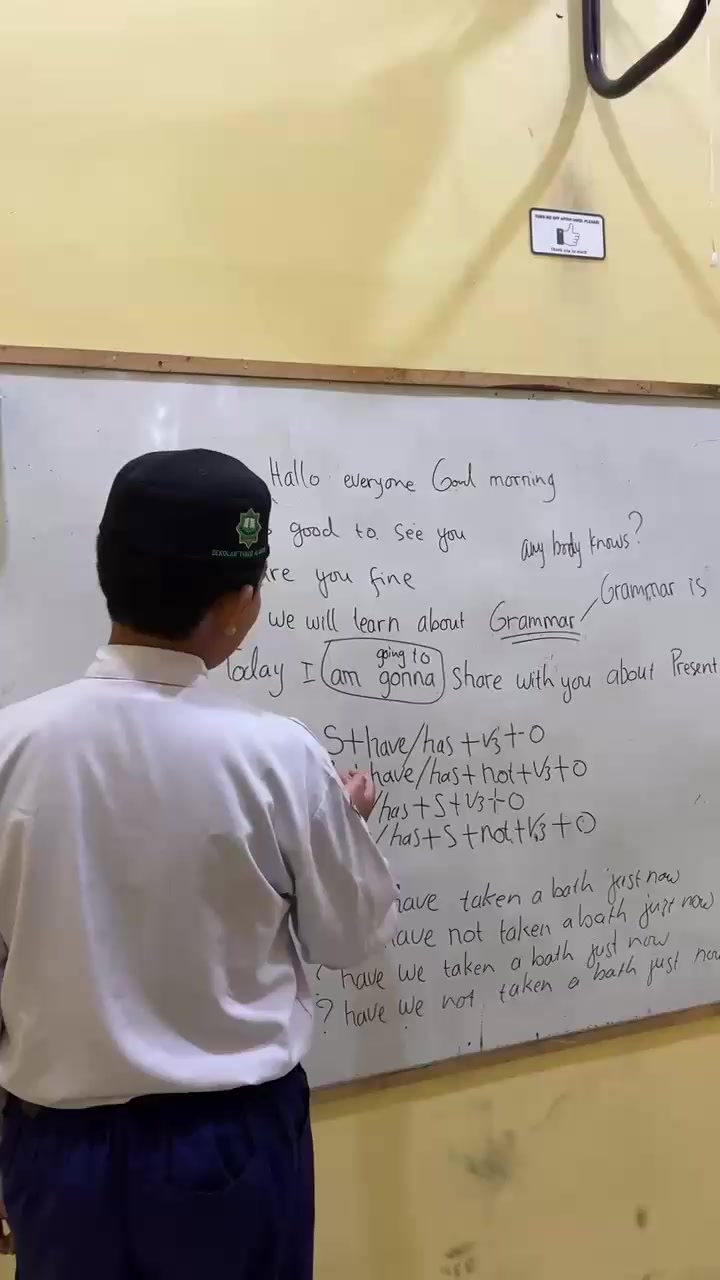 Hallo everyone Good morning
good to see you
any body knows?
are you fine
Grammar is
we will learn about Grammar
going to
Today I am gonna share with you about Present
S+have/has+V3+O
have/has+not+V3+O
/has+S+V3+O
/has+S+not+V3+O
have taken a bath just now
have not taken a bath just now
? have we taken a bath just now
? have we not taken a bath just now